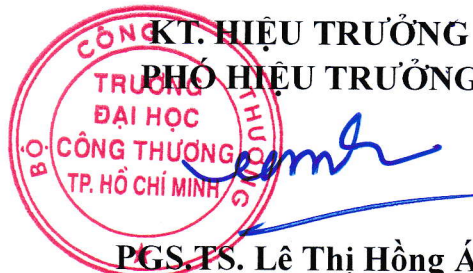 KT. HIỆU TRƯỞNG
PHÓ HIỆU TRƯỞNG
BỘ CÔNG THƯƠNG
TRƯỜNG
ĐẠI HỌC
CÔNG THƯƠNG
TP. HỒ CHÍ MINH
PGS.TS. Lê Thị Hồng Á